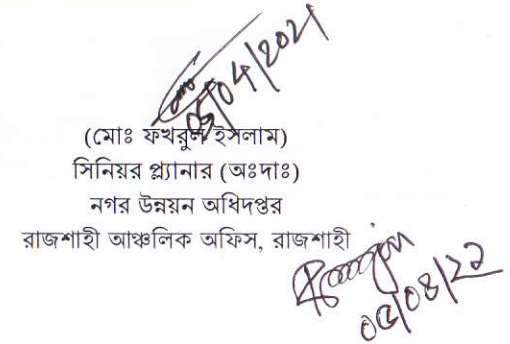 05/04/2021
(মোঃ ফখরুল ইসলাম)
সিনিয়র প্ল্যানার (অঃদাঃ)
নগর উন্নয়ন অধিদপ্তর
রাজশাহী আঞ্চলিক অফিস, রাজশাহী